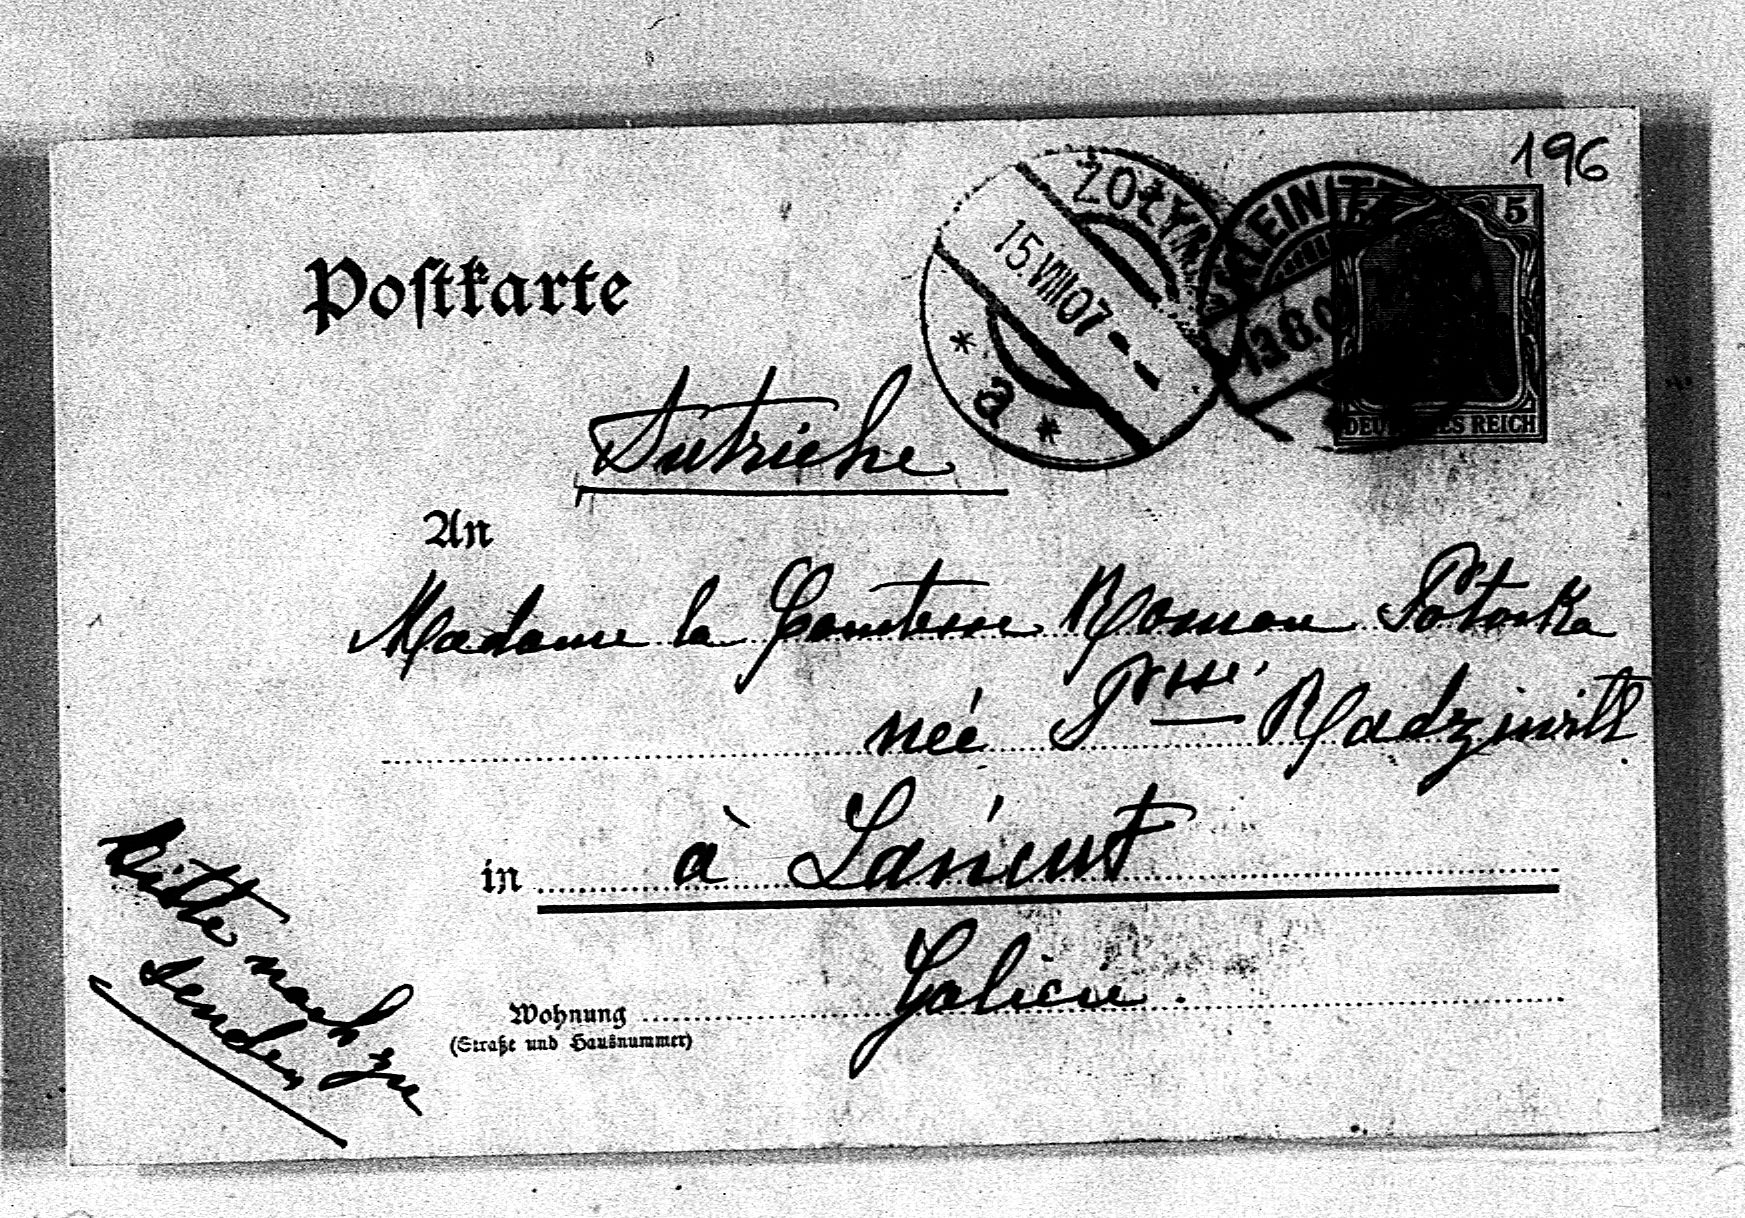 196
ŻOŁYN
15.VIII 07
* a *
KLEINITZ
13.8.0
5
DEUTSCHES REICH
Postkarte
Autriche
An
Madame la Comtesse Roman Potocka
née Psse. Radziwill
in à Łańcut
Galicie.
Wohnung
(Straße und Hausnummer)
Bitte nach zu
senden